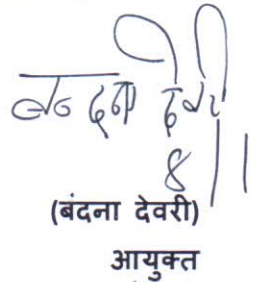 बन्दना देवरी
४।।
(बंदना देवरी)
आयुक्त